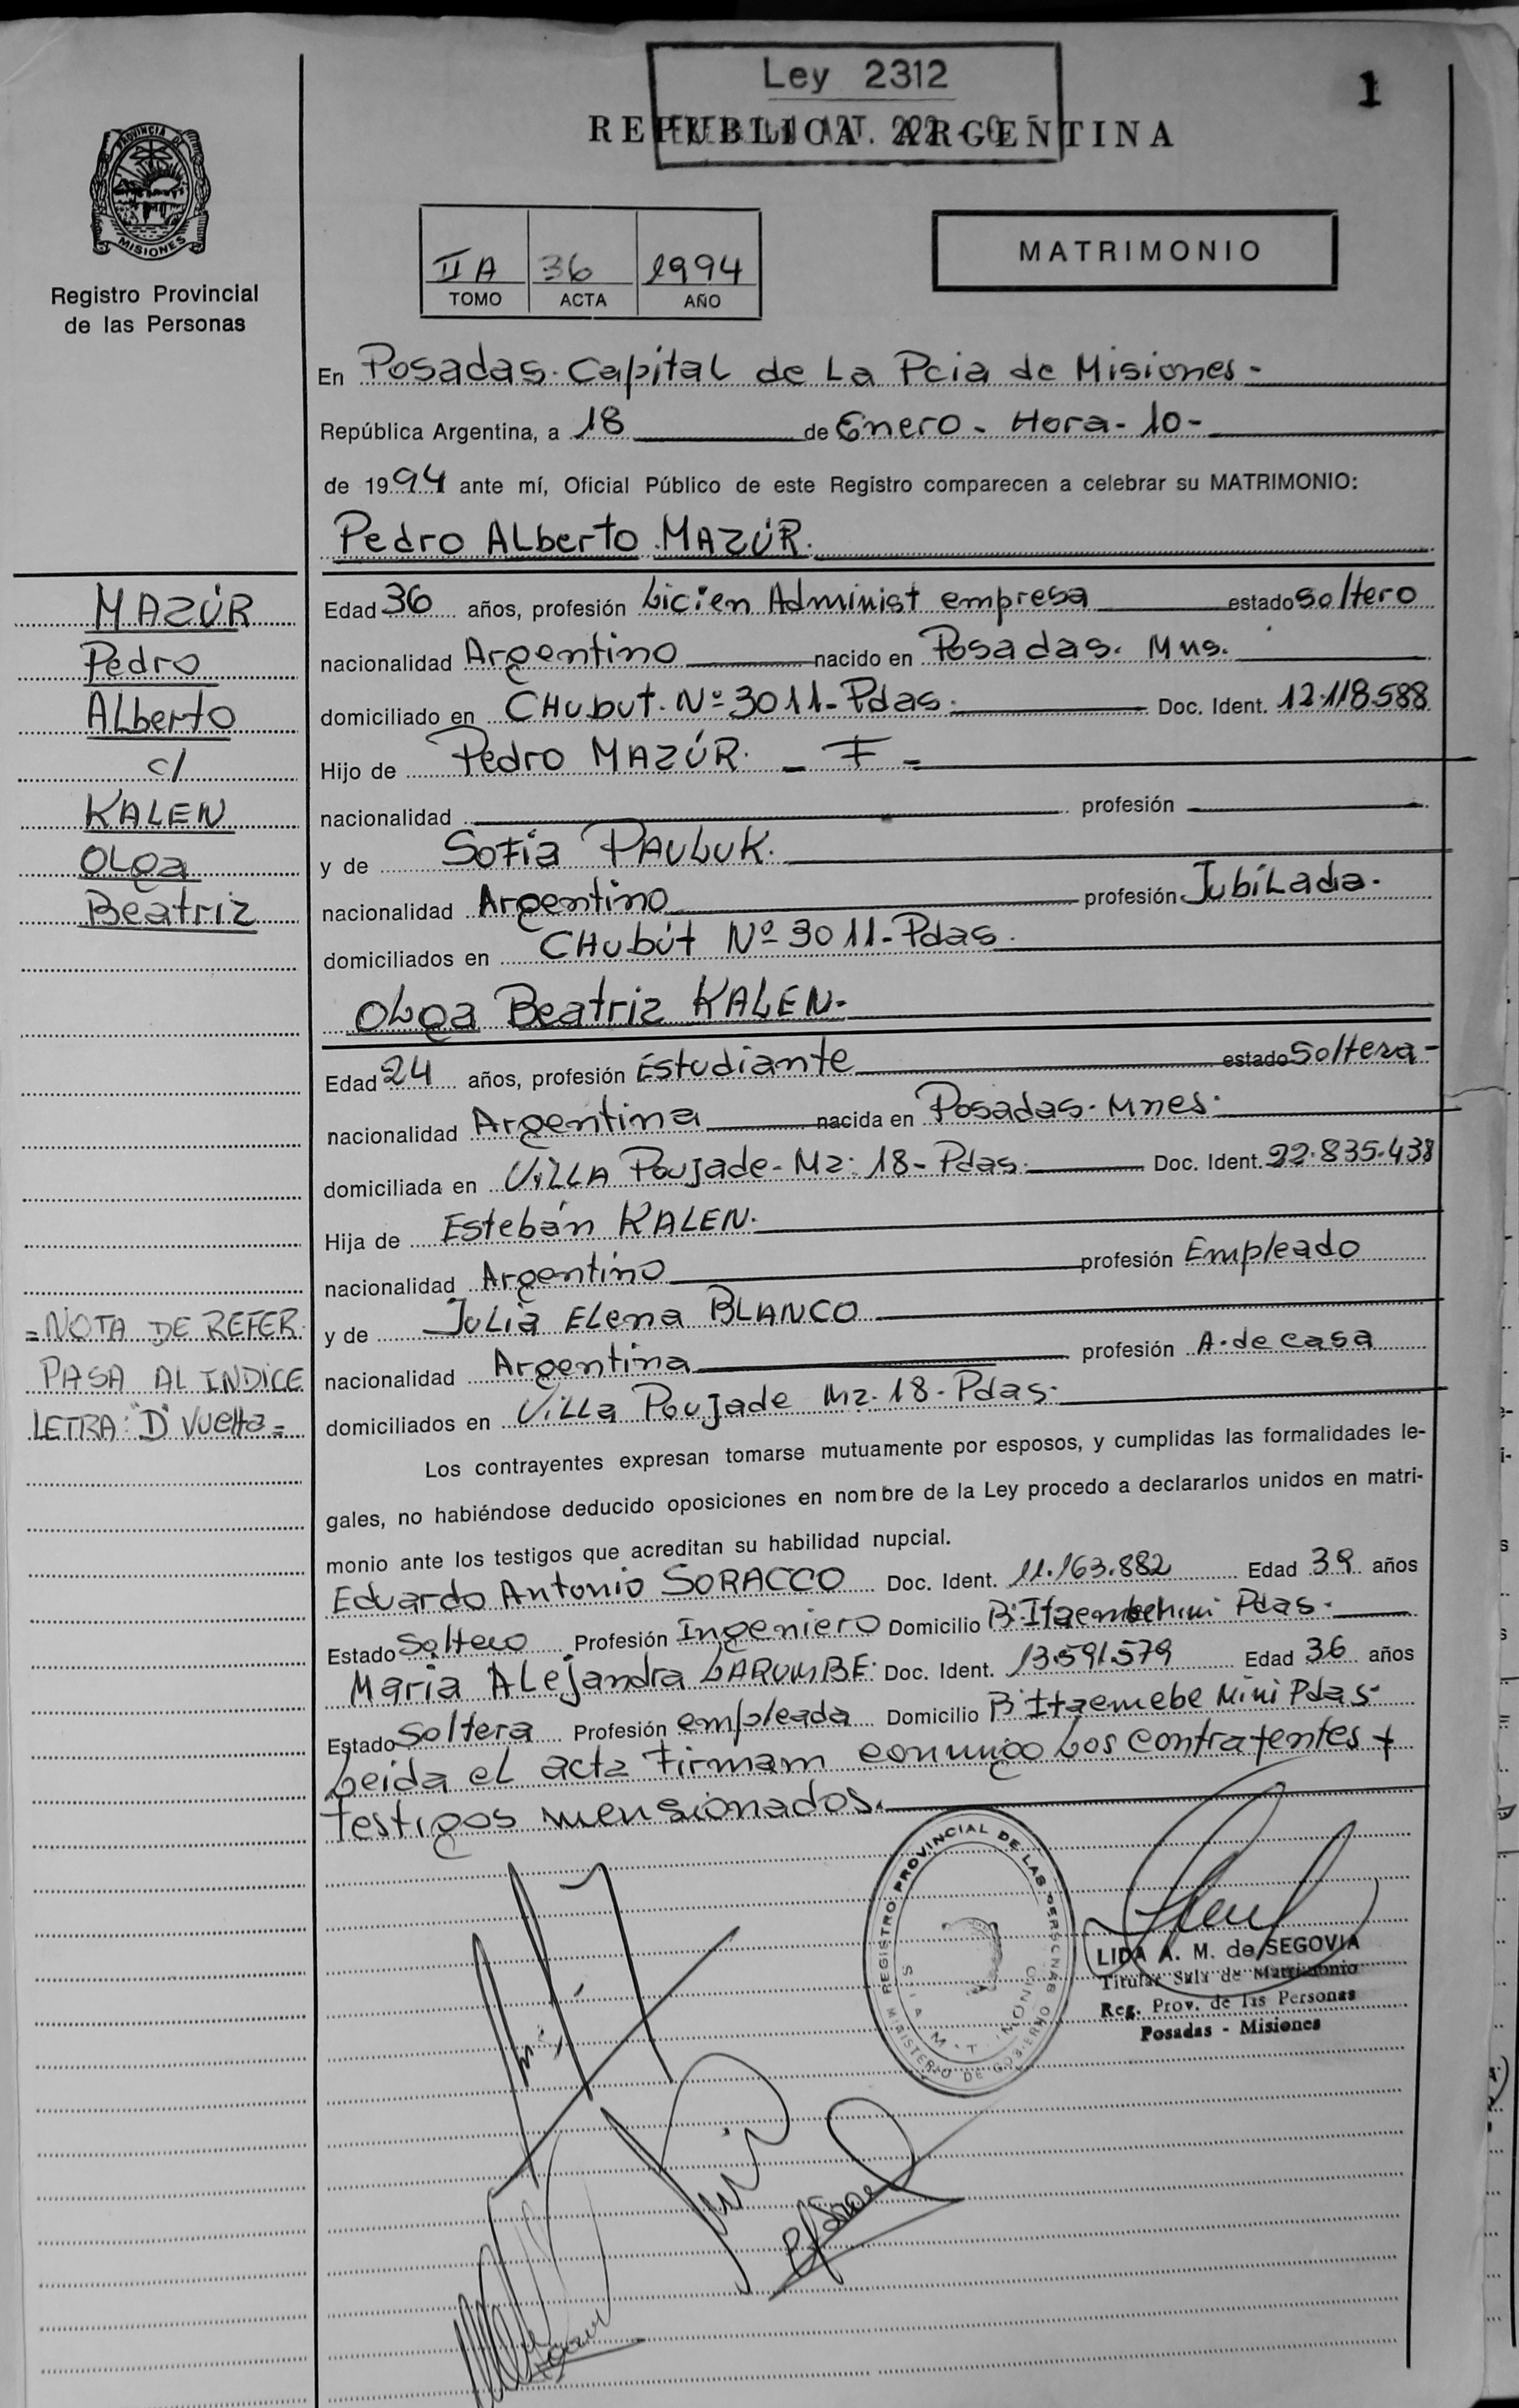 Ley 2312
1
REPUBLICA ARGENTINA
PROVINCIA DE
MISIONES
Registro Provincial
de las Personas
II A 36 1994
TOMO ACTA AÑO
MATRIMONIO
En Posadas. Capital de La Pcia de Misiones-
República Argentina, a 18 de Enero - Hora - 10 -
de 1994 ante mí, Oficial Público de este Registro comparecen a celebrar su MATRIMONIO:
Pedro Alberto MAZÚR.
Edad 36 años, profesión Licien Administ empresa estado soltero
nacionalidad Argentino nacido en Posadas. Mns.
domiciliado en CHubut. Nº 3011 - Pdas. Doc. Ident. 12.118.588
Hijo de Pedro MAZÚR. - F -
nacionalidad profesión
y de Sofía PAULUK.
nacionalidad Argentino profesión Jubilada.
domiciliados en CHubút Nº 3011 - Pdas.
Olga Beatriz KALEN-
Edad 24 años, profesión Estudiante estado soltera -
nacionalidad Argentina nacida en Posadas. Mnes.
domiciliada en Villa Poujade - Mz: 18 - Pdas. Doc. Ident. 22.835.438
Hija de Estebán KALEN.
nacionalidad Argentino profesión Empleado
y de Julia Elena BLANCO
nacionalidad Argentina profesión A. de casa
domiciliados en Villa Poujade Mz. 18 - Pdas.
Los contrayentes expresan tomarse mutuamente por esposos, y cumplidas las formalidades le-
gales, no habiéndose deducido oposiciones en nombre de la Ley procedo a declararlos unidos en matri-
monio ante los testigos que acreditan su habilidad nupcial.
Eduardo Antonio SORACCO Doc. Ident. 11.163.882 Edad 39 años
Estado Soltero Profesión Ingeniero Domicilio Bº Itaembemini Pdas.
Maria Alejandra LARUMBE. Doc. Ident. 13.591.579 Edad 36 años
Estado Soltera Profesión empleada Domicilio Bº Itaemebe Mini Pdas.
Leida el acta firmam conmigo los contrayentes y
testigos mensionados.
MAZÚR
Pedro
Alberto
c/
KALEN
Olga
Beatriz
= NOTA DE REFER
PASA AL INDICE
LETRA: "D" Vuelta =
REGISTRO PROVINCIAL DE LAS PERSONAS
MINISTERIO DE GOBIERNO
LIDA A. M. de SEGOVIA
Titular Sala de Matrimonio
Reg. Prov. de las Personas
Posadas - Misiones